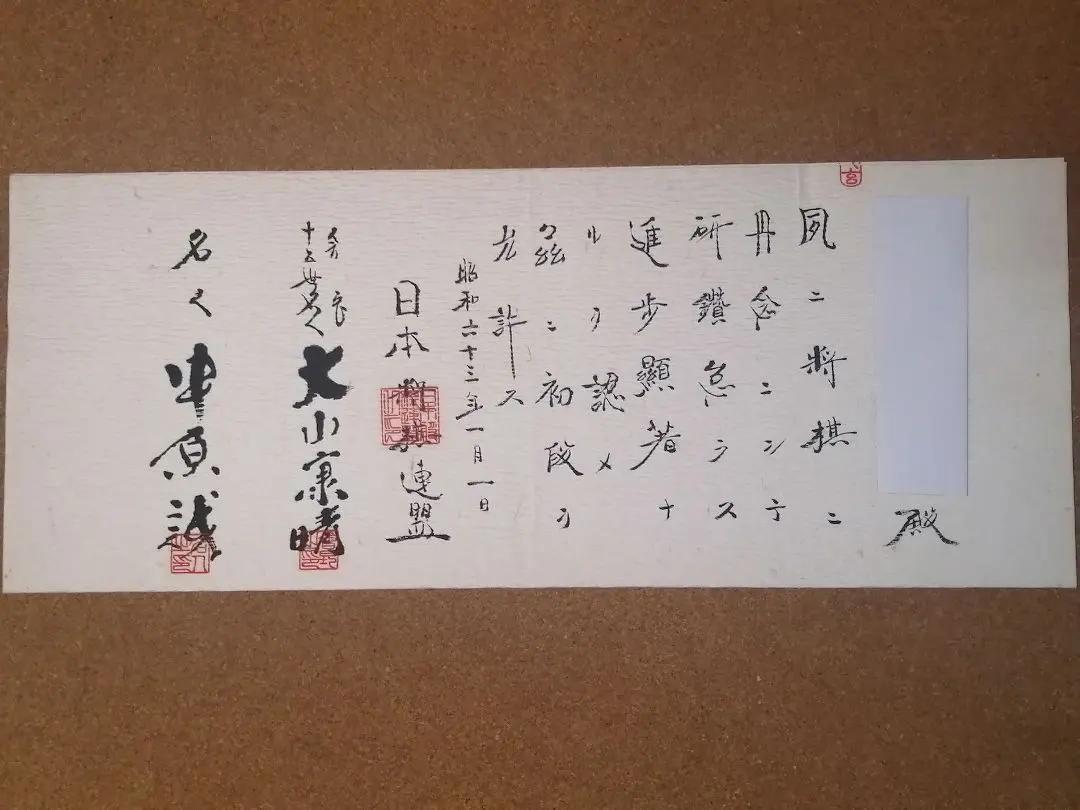 殿
夙ニ将棋ニ
丹念ニシテ
研鑽怠ラス
進歩顯著ナ
ルヲ認メ
茲ニ初段ヲ
允許ス
昭和六十三年一月一日
日本将棋連盟
会長
十五世名人 大山康晴
名人 中原誠